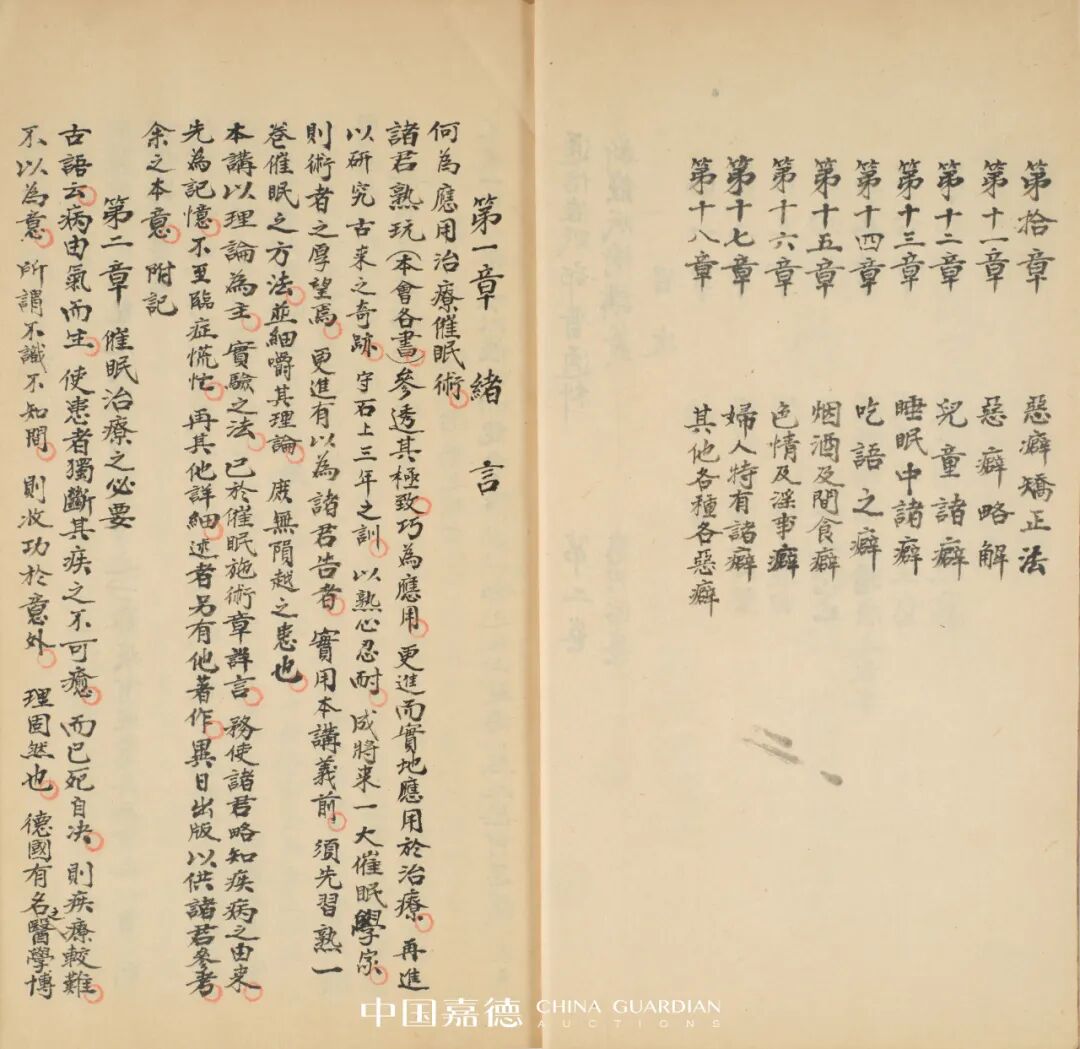 第拾章 惡癖矯正法
第十一章 惡癖略解
第十二章 兒童諸癖
第十三章 睡眠中諸癖
第十四章 吃語之癖
第十五章 烟酒及間食癖
第十六章 色情及淫事癖
第十七章 婦人特有諸癖
第十八章 其他各種各惡癖
第一章 緒言
何為應用治療催眠術。
諸君熟玩（本會各書）參透其極致。巧為應用。更進而實地應用於治療。再進
以研究古來之奇跡。守石上三年之訓。以熟心忍耐。成將来一大催眠學家。
則術者之厚望焉。更進有以為諸君告者。實用本講義前。須先習熟一
卷催眠之方法。並細嚼其理論。庶無隕越之患也。
本講以理論為主。實驗之法。已於催眠施術章詳言。務使諸君略知疾病之由来。
先為記憶。不至臨症慌忙。再其他詳細述者。另有他著作。異日出版以供諸君參考。
余之本意。附記
第二章 催眠治療之必要
古語云。病由氣而生。使患者獨斷其疾之不可癒。而已死自决。則疾療較難。
不以為意。所謂不識不知間。則收功於意外。理固然也。德國有名之醫學博
中国嘉德 CHINA GUARDIAN
AUCTIONS